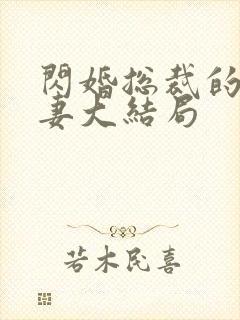 閃婚总裁的
妻大結局
若木民喜